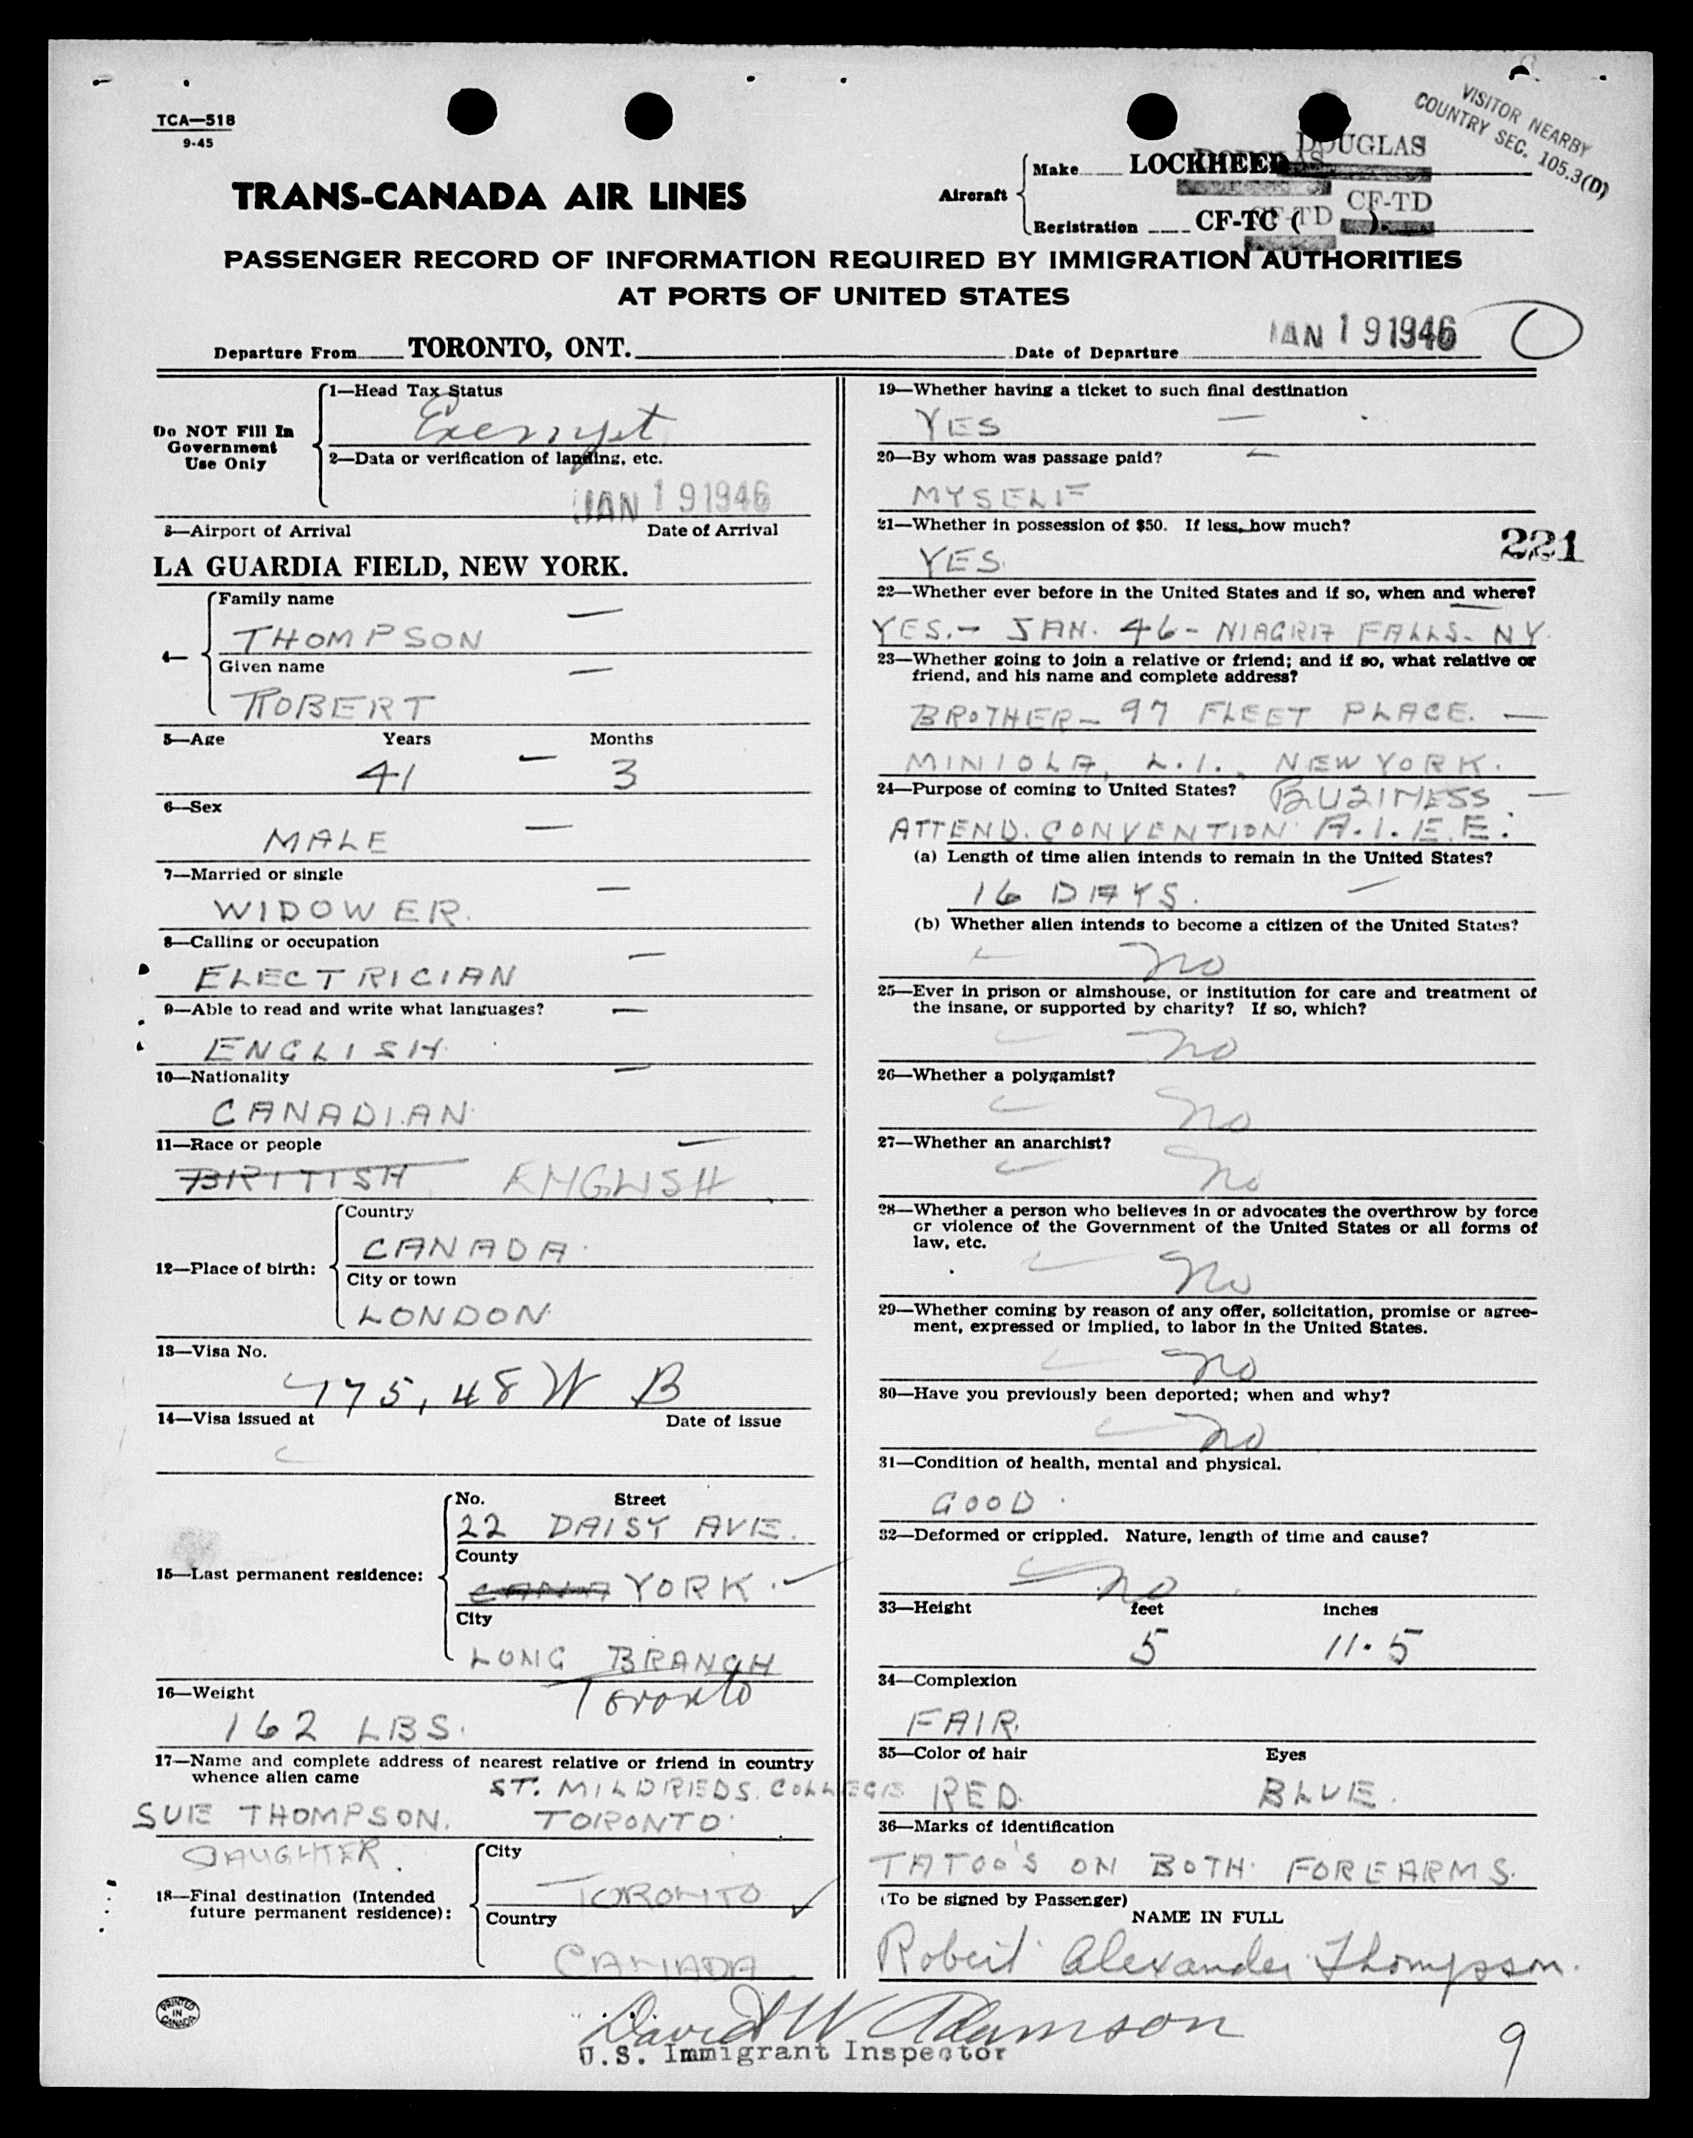 TCA—518
9-45
VISITOR NEARBY
COUNTRY SEC. 105.3(D)
TRANS-CANADA AIR LINES
Aircraft
Make LOCKHEED DOUGLAS
Registration CF-TC ( ) CF-TD CF-TD
PASSENGER RECORD OF INFORMATION REQUIRED BY IMMIGRATION AUTHORITIES
AT PORTS OF UNITED STATES
Departure From TORONTO, ONT. Date of Departure JAN 19 1946
Do NOT Fill In
Government
Use Only
1—Head Tax Status
Exempt
2—Data or verification of landing, etc.
JAN 19 1946
3—Airport of Arrival Date of Arrival
LA GUARDIA FIELD, NEW YORK.
4—
Family name
THOMPSON
Given name
ROBERT
5—Age Years Months
41 3
6—Sex
MALE
7—Married or single
WIDOWER.
8—Calling or occupation
ELECTRICIAN
9—Able to read and write what languages?
ENGLISH
10—Nationality
CANADIAN
11—Race or people
BRITISH ENGLISH
12—Place of birth:
Country
CANADA
City or town
LONDON
13—Visa No.
175, 48 W B
14—Visa issued at Date of issue
15—Last permanent residence:
No. Street
22 DAISY AVE.
County
CANA YORK.
City
LONG BRANCH
Toronto
16—Weight
162 LBS.
17—Name and complete address of nearest relative or friend in country
whence alien came
ST. MILDREDS. COLLEGE
SUE THOMPSON. TORONTO
DAUGHTER.
18—Final destination (Intended
future permanent residence):
City
TORONTO
Country
CANADA
19—Whether having a ticket to such final destination
YES
20—By whom was passage paid?
MYSELF
21—Whether in possession of $50. If less, how much?
YES.
221
22—Whether ever before in the United States and if so, when and where?
YES.- JAN. 46- NIAGRA FALLS- NY.
23—Whether going to join a relative or friend; and if so, what relative or
friend, and his name and complete address?
BROTHER- 97 FLEET PLACE.
MINIOLA, L.I., NEW YORK.
24—Purpose of coming to United States? BUSINESS
ATTEND. CONVENTION A.I.E.E.
(a) Length of time alien intends to remain in the United States?
16 DAYS.
(b) Whether alien intends to become a citizen of the United States?
No
25—Ever in prison or almshouse, or institution for care and treatment of
the insane, or supported by charity? If so, which?
No
26—Whether a polygamist?
No
27—Whether an anarchist?
No
28—Whether a person who believes in or advocates the overthrow by force
or violence of the Government of the United States or all forms of
law, etc.
No
29—Whether coming by reason of any offer, solicitation, promise or agree-
ment, expressed or implied, to labor in the United States.
No
30—Have you previously been deported; when and why?
No
31—Condition of health, mental and physical.
GOOD
32—Deformed or crippled. Nature, length of time and cause?
No
33—Height feet inches
5 11.5
34—Complexion
FAIR.
35—Color of hair Eyes
RED. BLUE.
36—Marks of identification
TATOO'S ON BOTH FOREARMS.
(To be signed by Passenger)
NAME IN FULL
Robert Alexander Thompson.
PRINTED
IN
CANADA
David W. Adamson
U.S. Immigrant Inspector
9